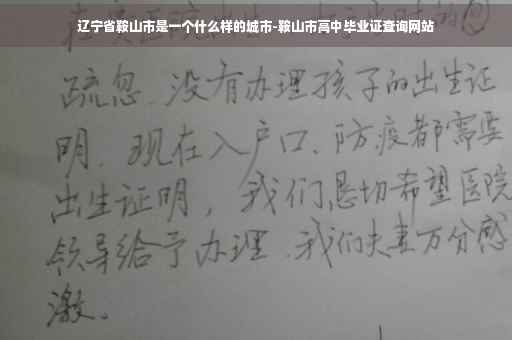 辽宁省鞍山市是一个什么样的城市-鞍山市高中毕业证查询网站
疏忽、没有办理孩子的出生证
明、现在入户口、防疫都需要
出生证明，我们恳切希望医院
领导给予办理、我们夫妻万分感
激。